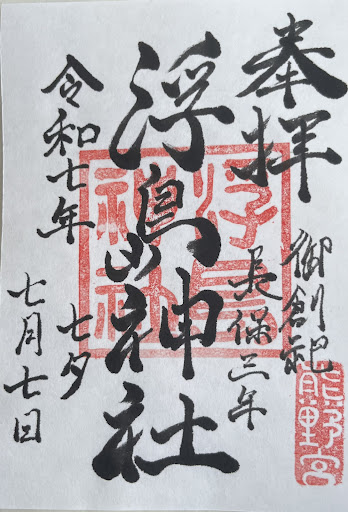 奉拝
御創祀
長保三年
浮島神社
令和七年
七夕
七月七日
浮島
神社
熊野宮